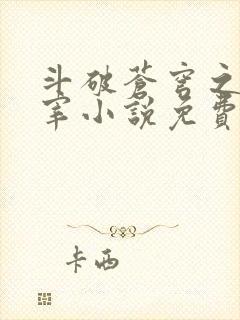 斗破苍穹之
宰小說免費
卡西